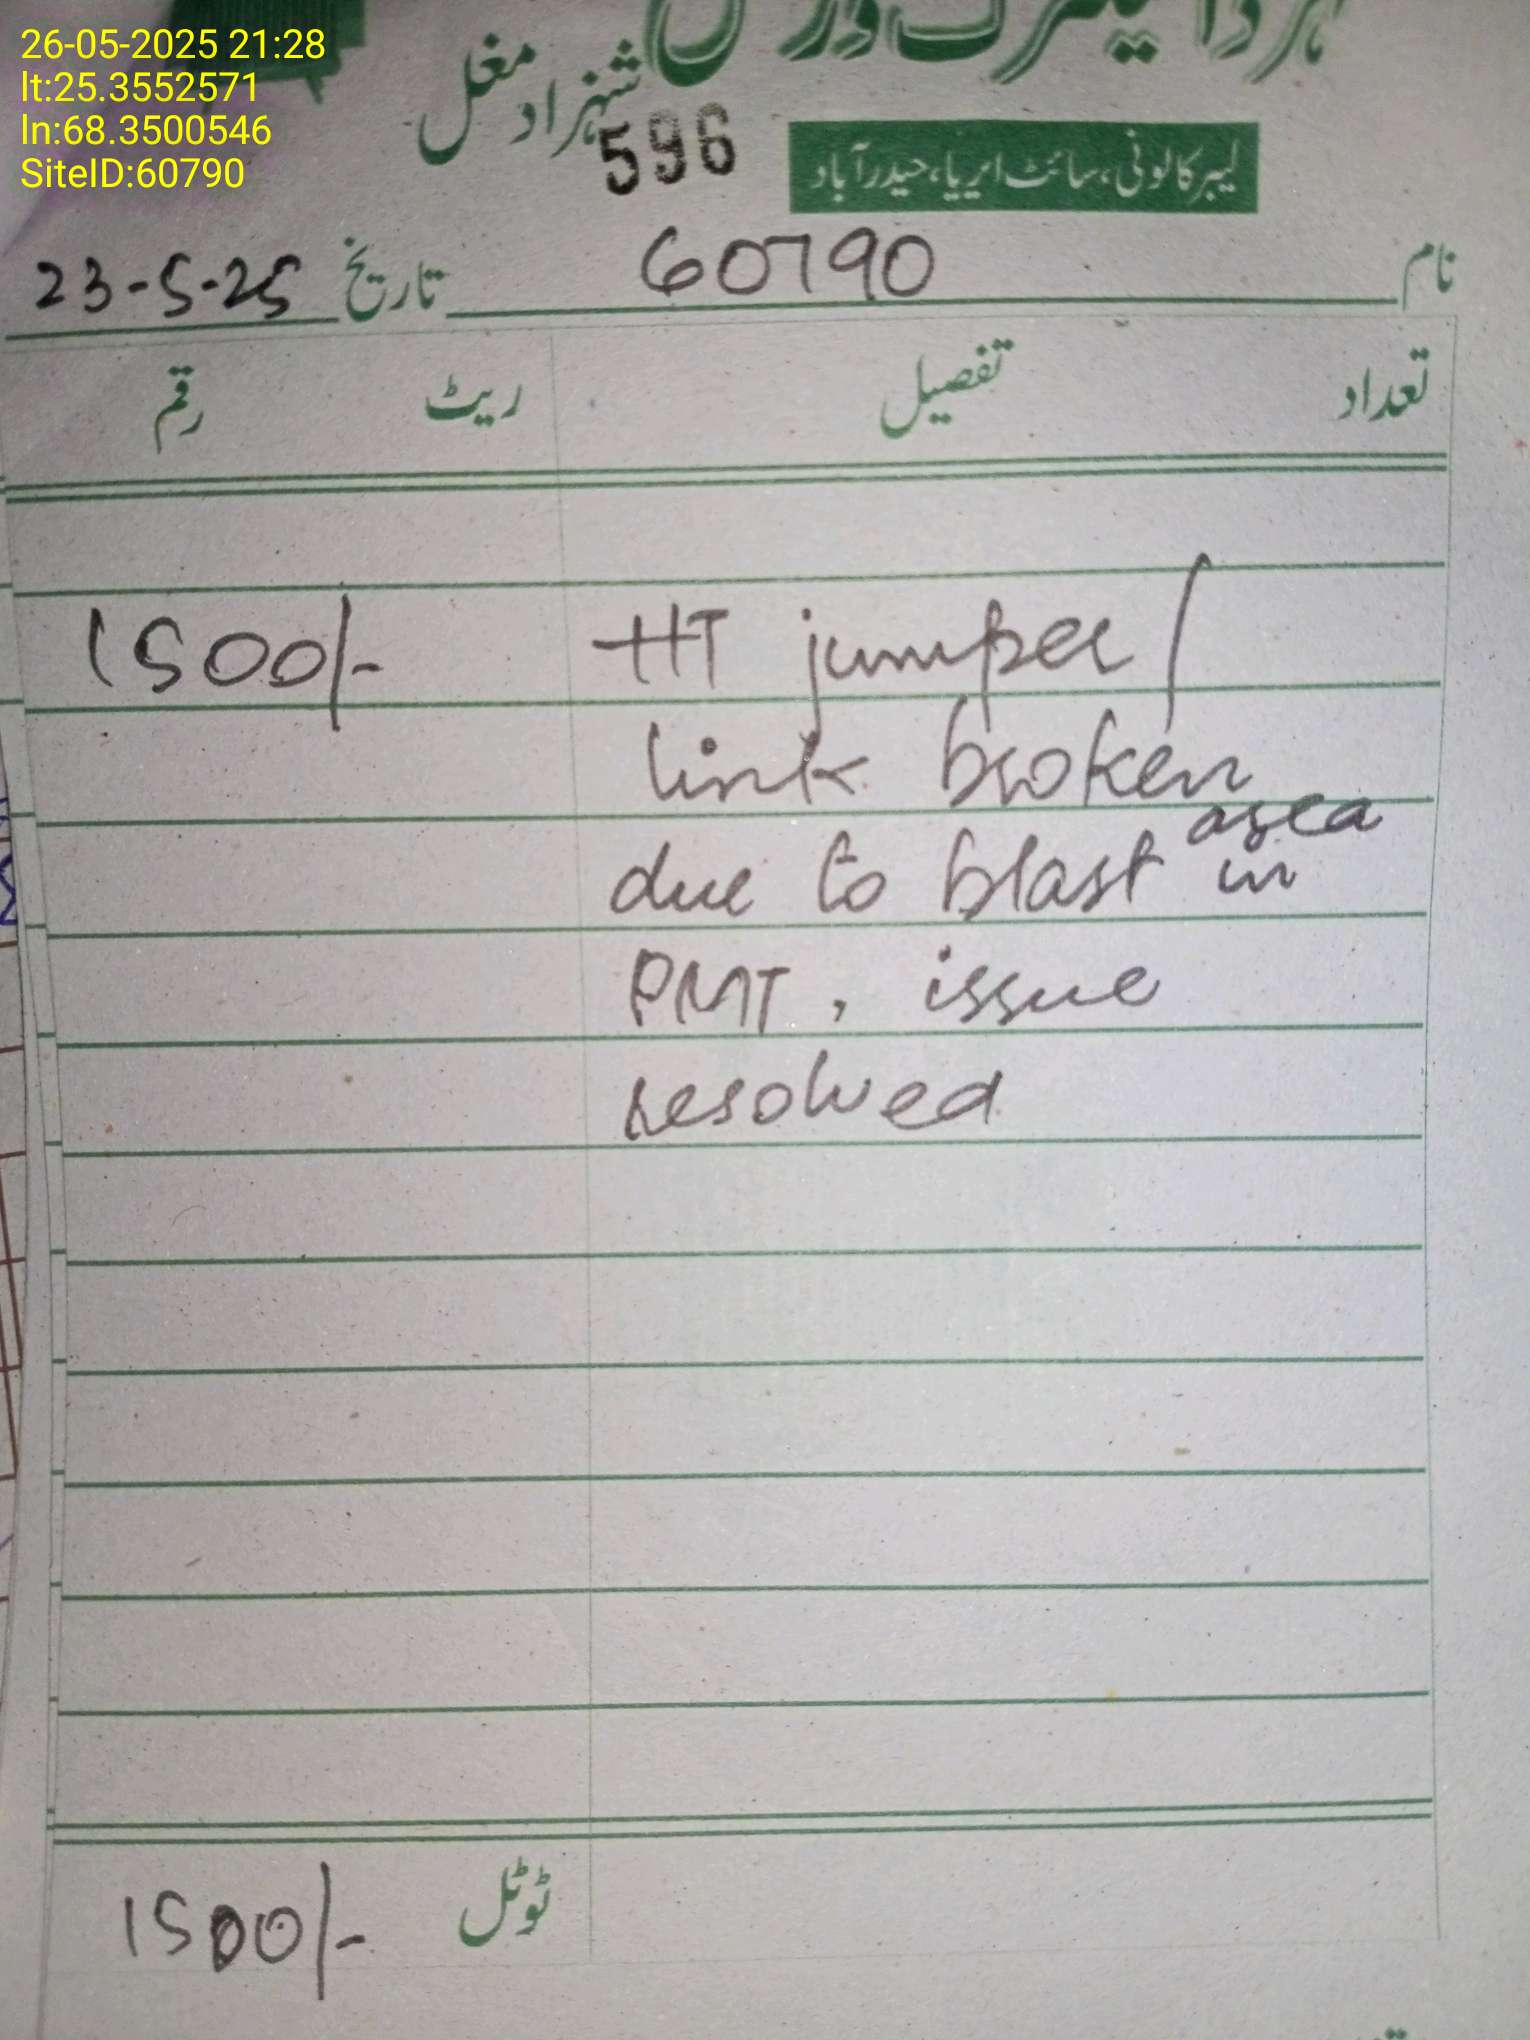 26-05-2025 21:28
lt:25.3552571
ln:68.3500546
SiteID:60790
الیکٹرک ورکس
شہزاد مغل
596
لیبر کالونی، سائٹ ایریا، حیدرآباد
نام 60790 تاریخ 23-5-25
تعداد تفصیل ریٹ رقم
HT jumper/ 1500/-
link broken
due to blast in area
PMT, issue
resolved
ٹوٹل 1500/-